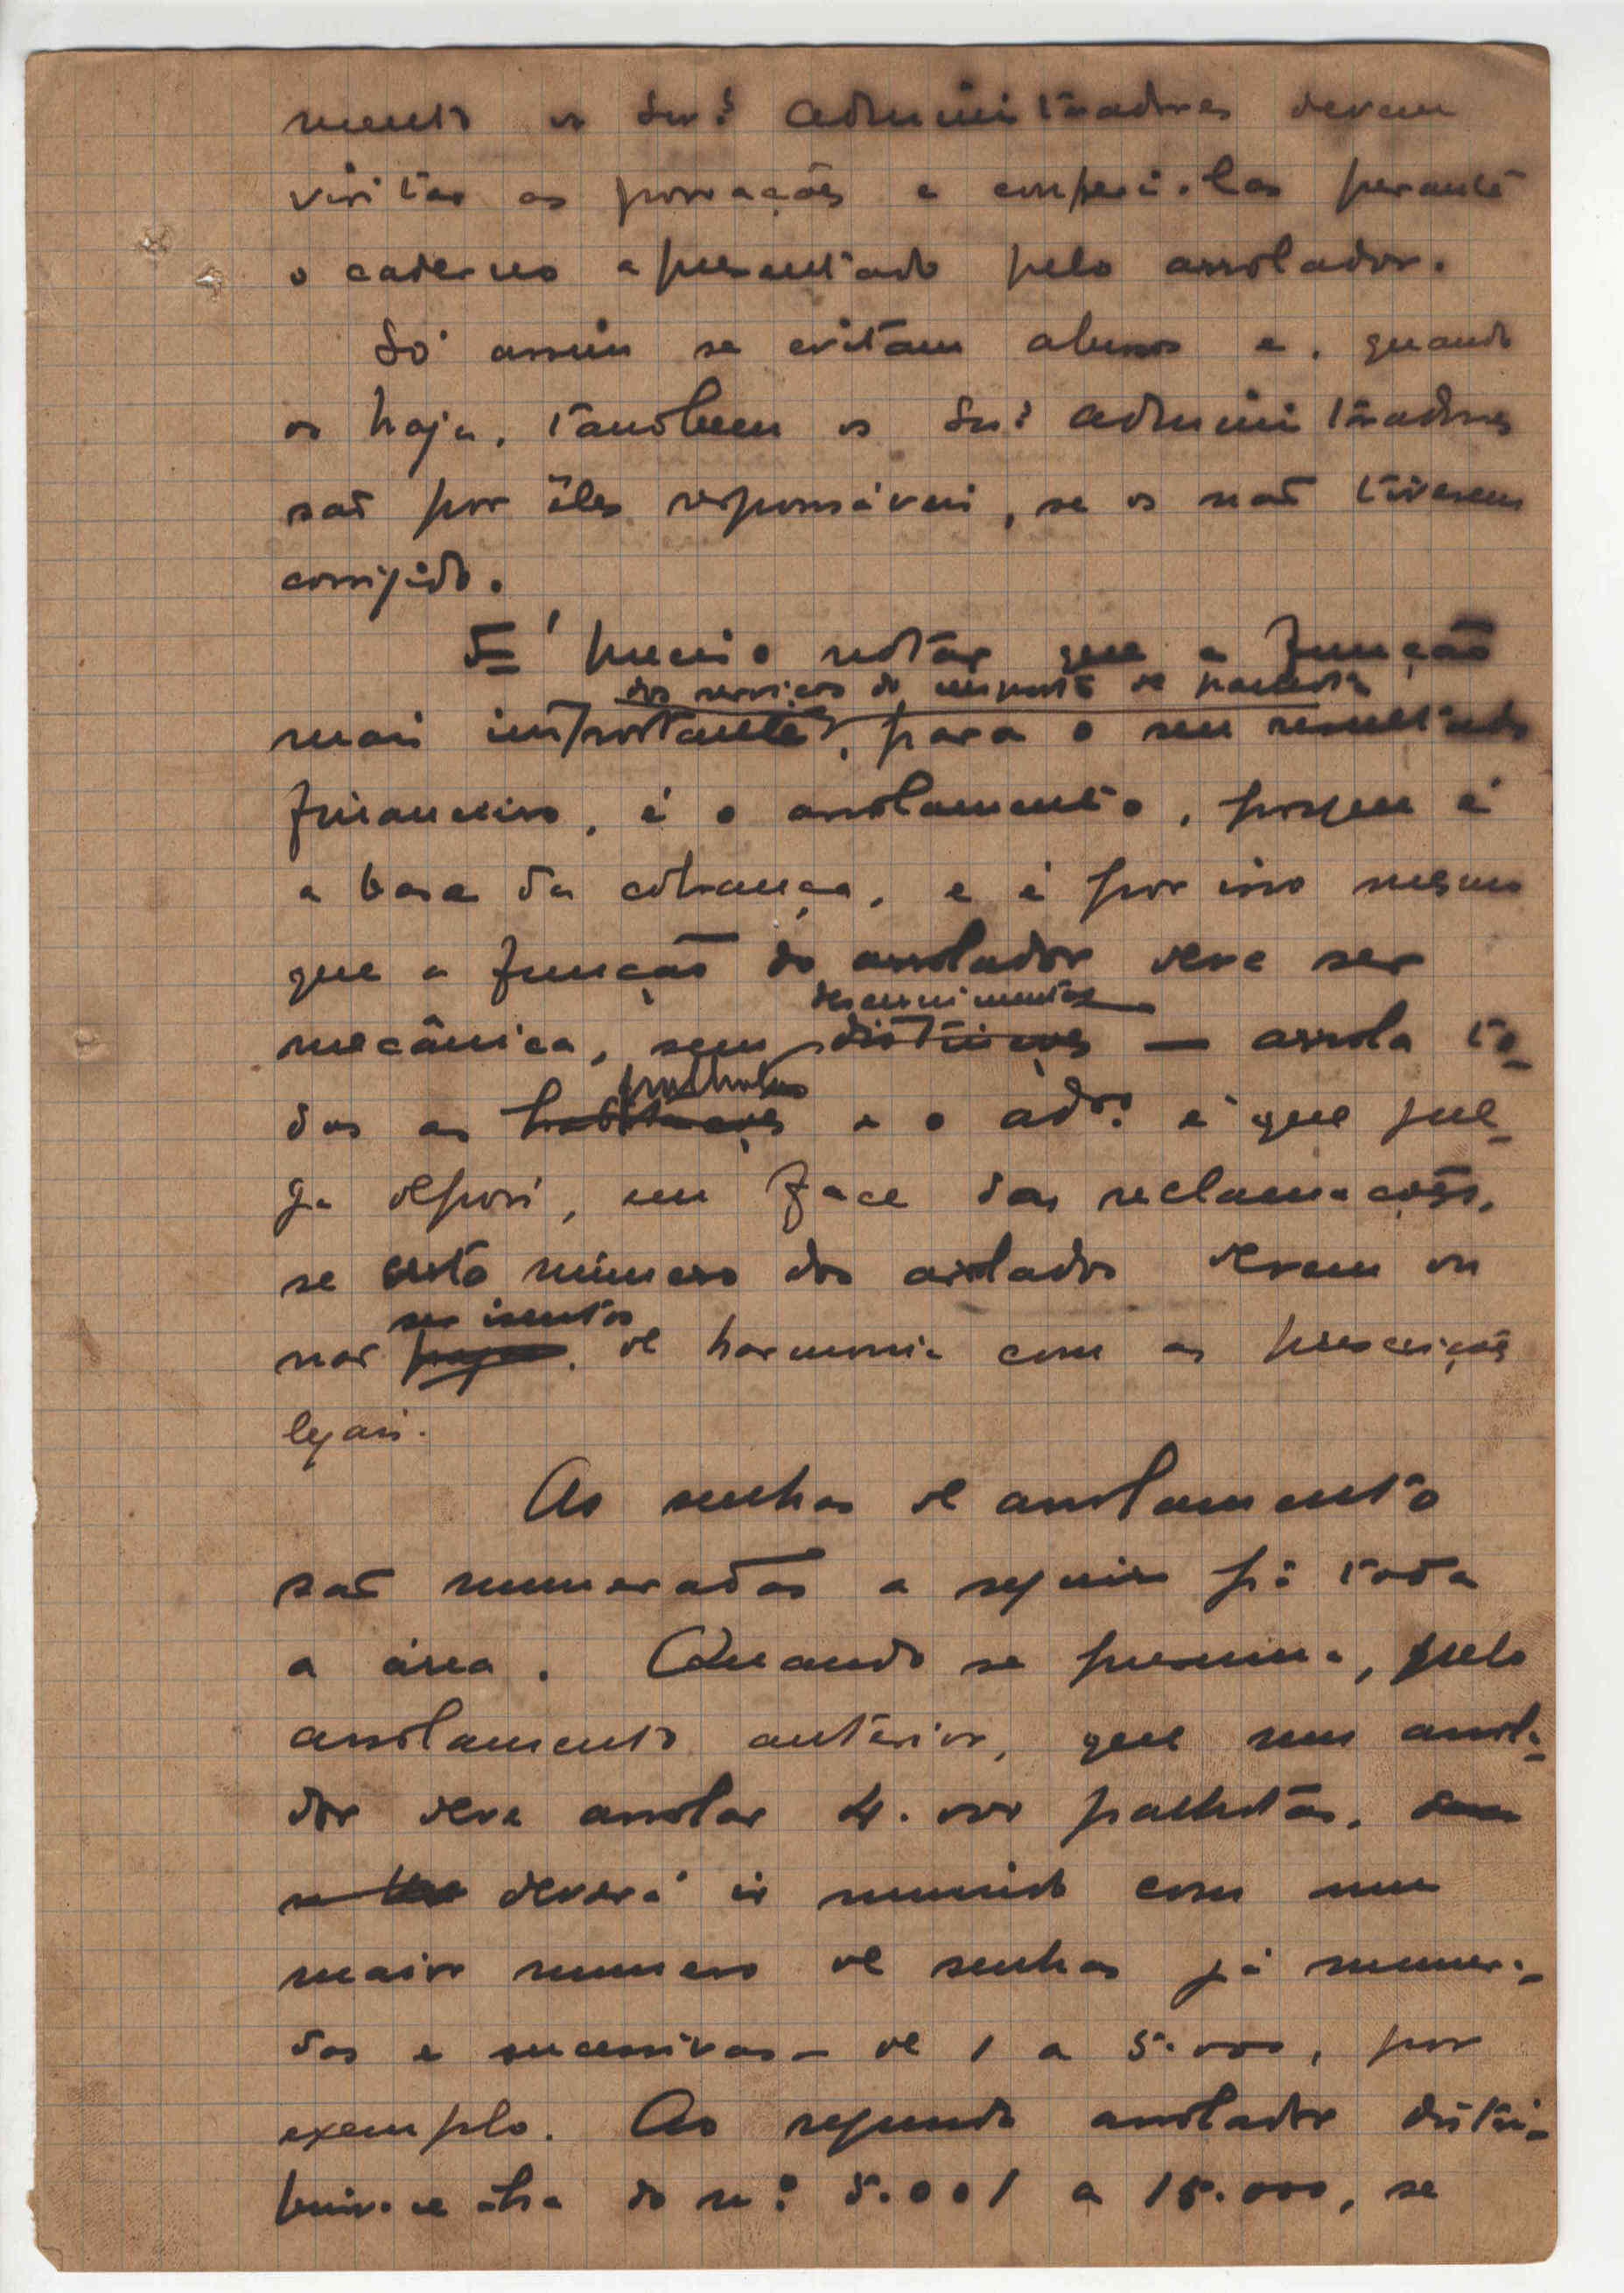 mento os Snrs administradores devem
visitar as povoações e conferi-las perante
o caderno apresentado pelo arrolador.
Só assim se evitam abusos e, quando
os haja, tambem os Snrs administradores
são por êles responsáveis, se os não tiverem
corrigido.
É preciso notar que a função
dos serviços do imposto de palhota
mais importante, para o seu resultado
financeiro, é o arrolamento, porque é
a base da cobrança, e é por isso mesmo
que a função do arrolador deve ser
descernimentos
mecânica, sem distinções — arrola to-
palhotas
das as habitações e o ador é que jul-
ga depois, em face das reclamações,
se certo número dos arrolados devem ou
ser isentos
não pagar, de harmonia com as prescrições
legais.
As senhas de arrolamento
são numeradas a seguir pª toda
a área. Quando se presuma, pelo
arrolamento anterior, que um arrola-
dor deve arrolar 4.000 palhotas,
deverá ir munido com um
maior numero de senhas já numera-
das e sucessivas - de 1 a 5.000, por
exemplo. Ao segundo arrolador distri-
bui-se-lha do nº 5.001 a 15.000, se